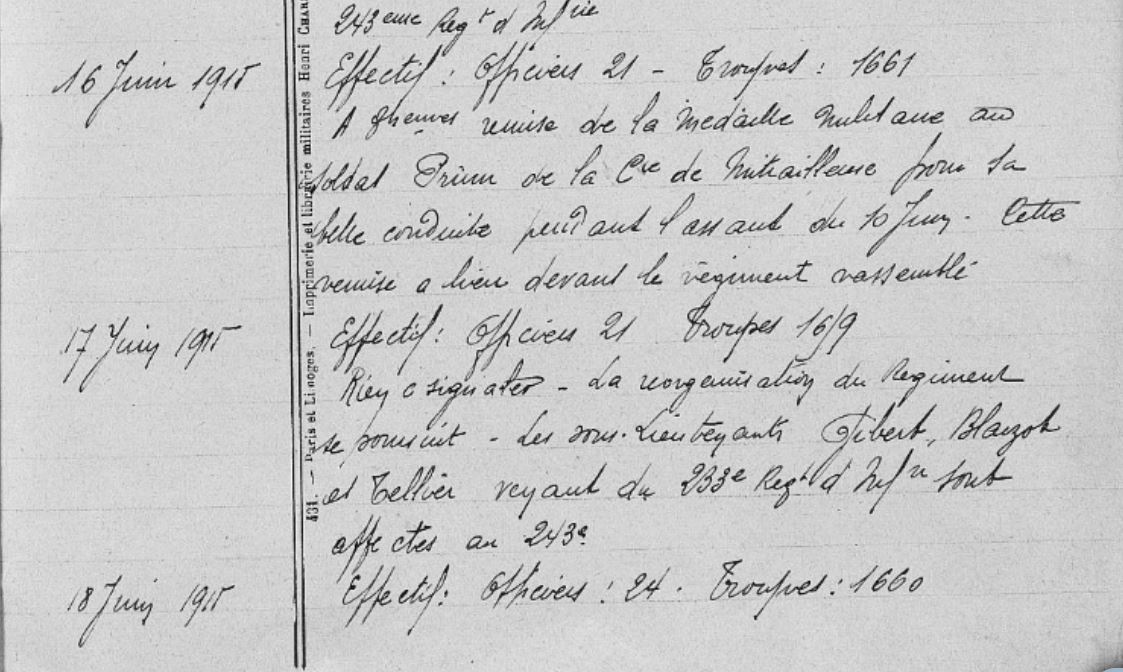 243eme Regt d'Infrie
16 Juin 1915
Effectif : Officiers 21 - Troupes : 1661
A heures remise de la Medaille Militaire au
soldat de la Cie de Mitrailleuse pour sa
belle conduite pendant l'assaut du 10 Juin. Cette
remise a lieu devant le régiment rassemblé
17 Juin 1915
Effectif : Officiers 21 Troupes
Rien a signaler - La reorganisation du Regiment
se poursuit - Les sous-Lieutenants Gibert, Blaizot
et Tellier venant du 233e Regt d'Infie sont
affectés au 243e
18 Juin 1915
Effectif : Officiers : 24 . Troupes : 1660
431. — Paris et Limoges. — Imprimerie et librairie militaires Henri